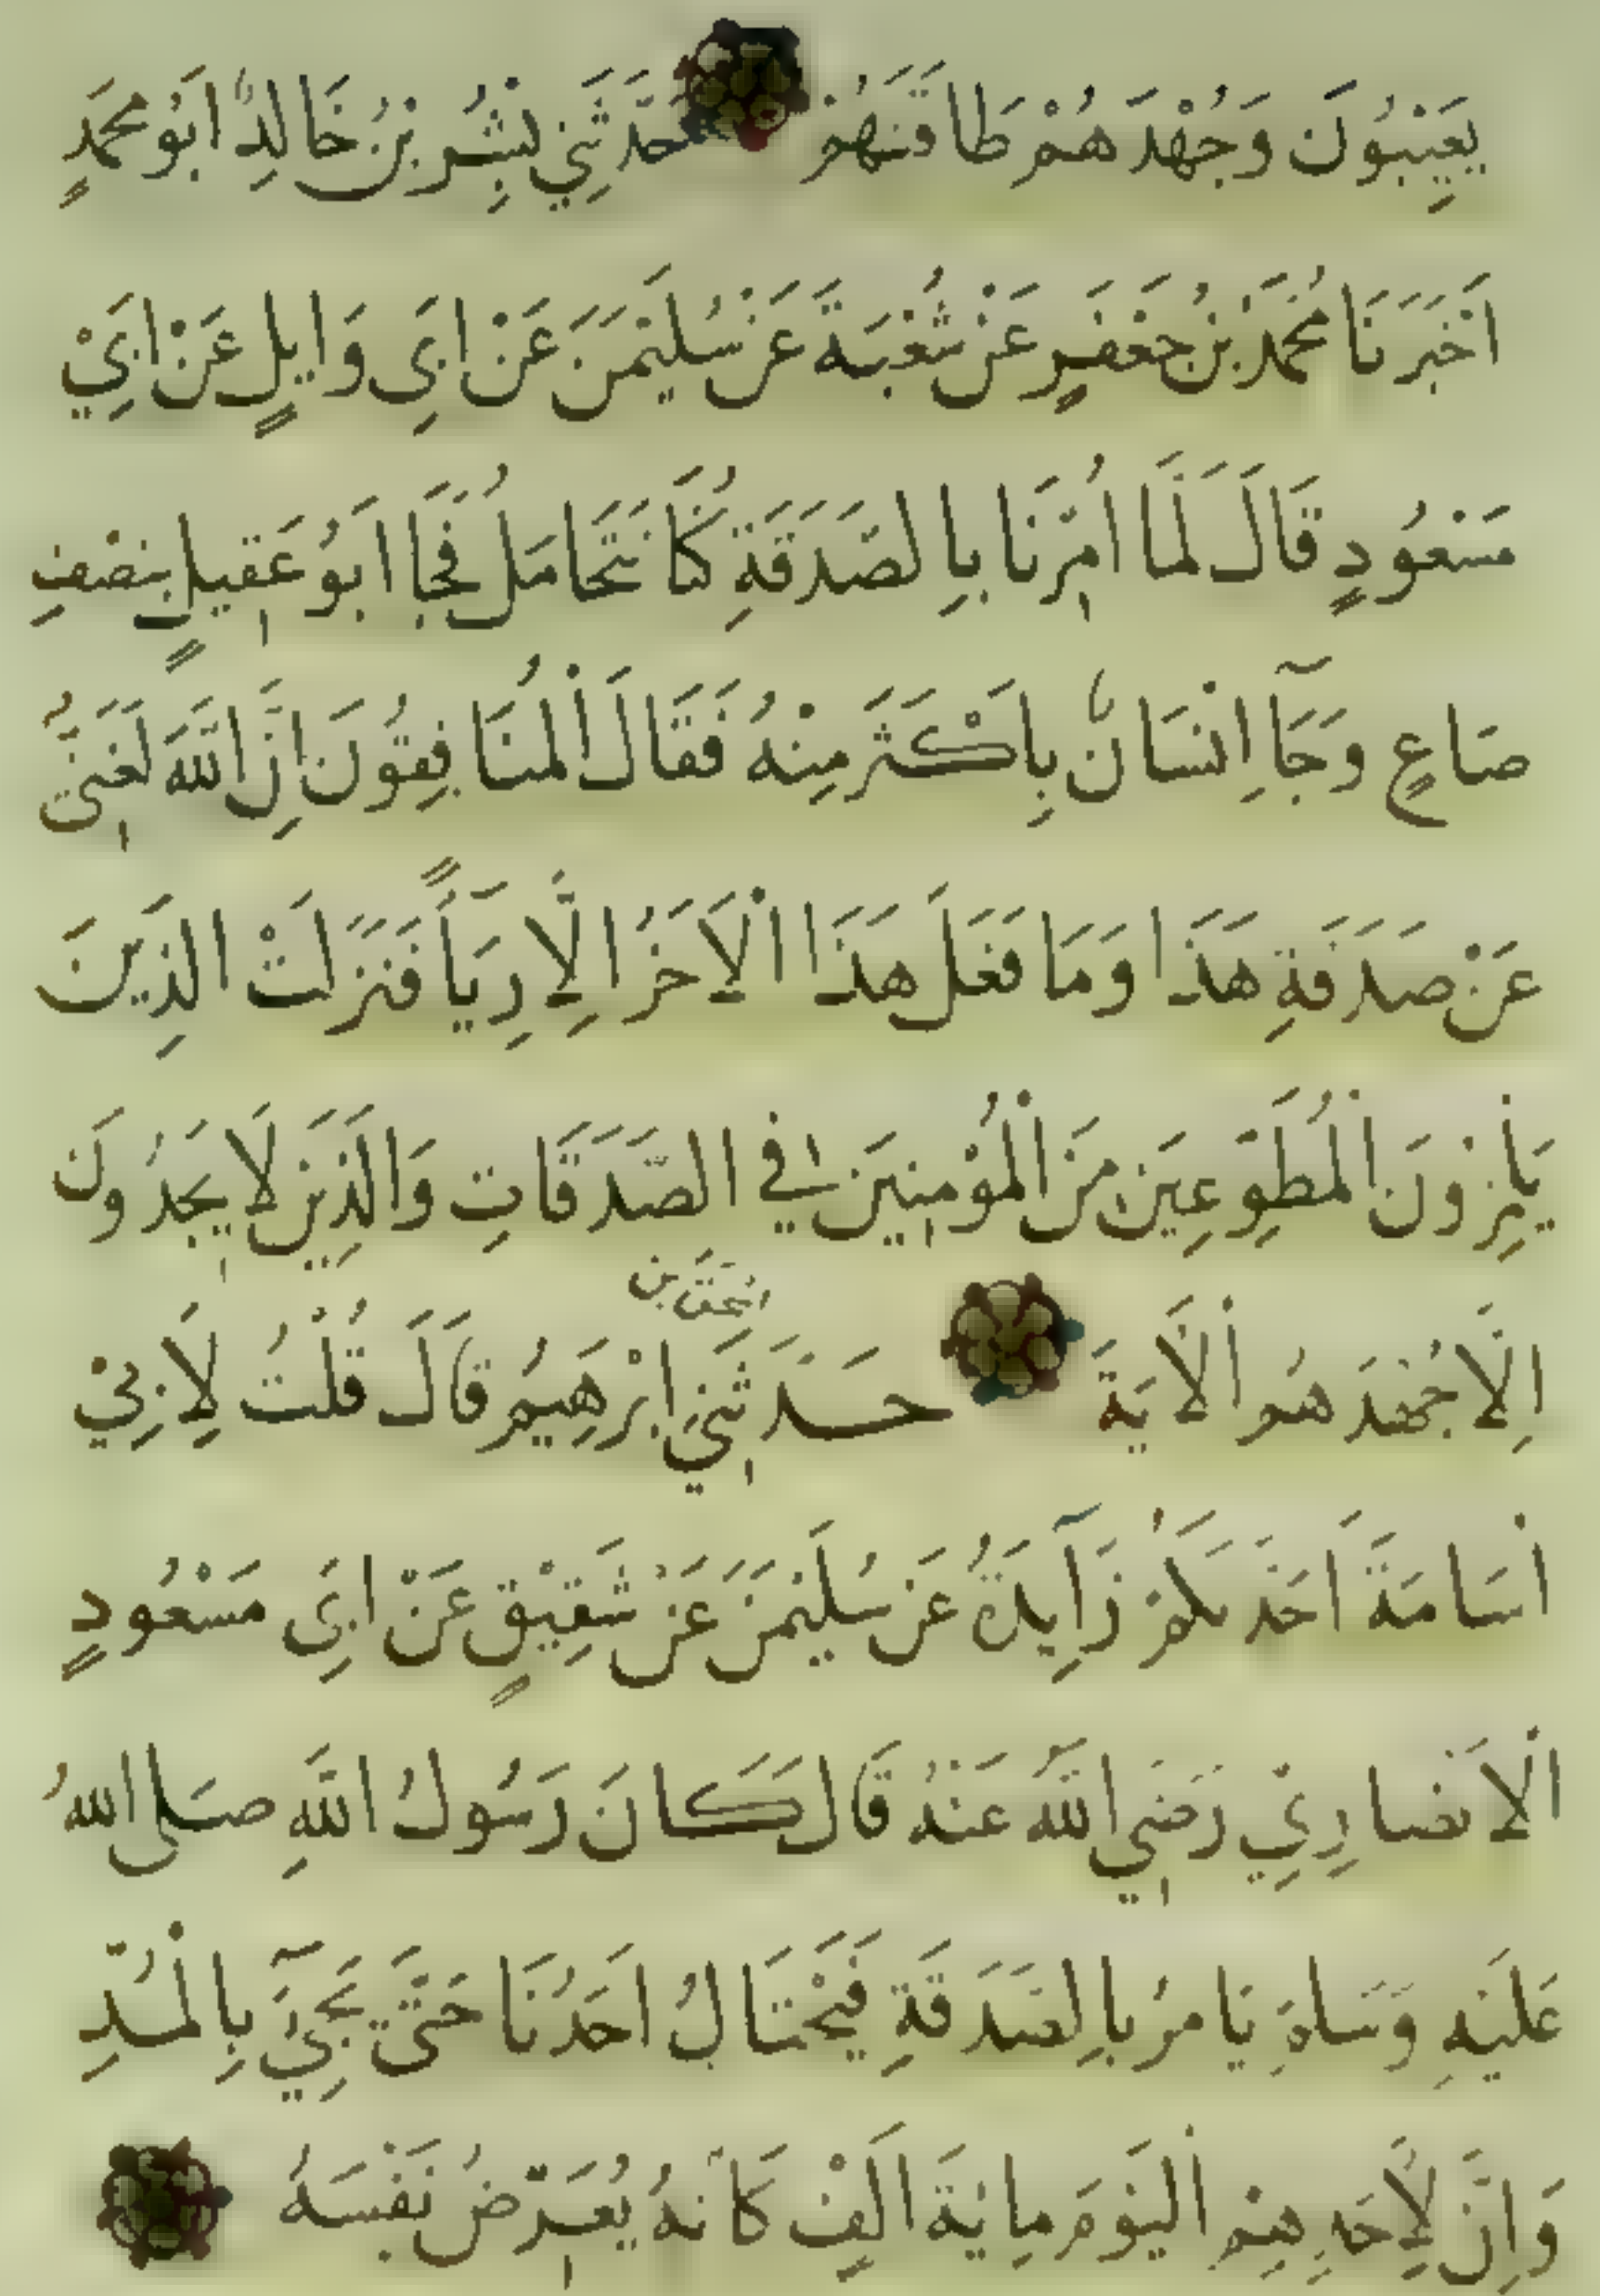 يَعِيْبُونَ وَجُهْدَهُمْ طَاقَتَهُمْ حَدَّثَنِي بِشْرُ بْنُ خَالِدٍ اَبُو مُحَمَّدٍ
اَخْبَرَنَا مُحَمَّدُ بْنُ جَعْفَرٍ عَنْ شُعْبَةَ عَنْ سُلَيْمٰنَ عَنْ اَبِي وَايِلٍ عَنْ اَبِيْ
مَسْعُودٍ قَالَ لَمَّا اُمِرْنَا بِالصَّدَقَةِ كُنَّا نَتَحَامَلُ فَجَا اَبُو عَقِيلٍ بِنِصْفِ
صَاعٍ وَجَآ اِنْسَانٌ بِاَكْثَرَ مِنْهُ فَقَالَ الْمُنَافِقُونَ اِنَّ اللّٰهَ لَغَنِيٌّ
عَنْ صَدَقَةِ هَذَا وَمَا فَعَلَ هَذَا الْاَخَرُ اِلَّا رِيَآءً فَنَزَلَتْ الَّذِينَ
يَلْمِزُونَ الْمُطَّوِّعِينَ مِنَ الْمُؤْمِنِينَ فِي الصَّدَقَاتِ وَالَّذِينَ لَا يَجِدُونَ
اسحق بن
اِلَّا جُهْدَهُمْ الْاٰيَةَ حَدَّثَنِي اِبْرٰهِيمُ قَالَ قُلْتُ لِاَبِيْ
اُسَامَةَ اَحَدَّثَكُمْ زَآيِدَةُ عَنْ سُلَيْمٰنَ عَنْ شَقِيْقٍ عَنْ اَبِي مَسْعُودٍ
الْاَنْصَارِيِّ رَضِيَ اللّٰهُ عَنْهُ قَالَ كَانَ رَسُولُ اللّٰهِ صَلَّى اللّٰهُ
عَلَيْهِ وَسَلَّمَ يَامُرُ بِالصَّدَقَةِ فَيَحْتَالُ اَحَدُنَا حَتَّى يَجِيَٓ بِالْمُدِّ
وَاِنَّ لِاَحَدِهِمْ الْيَوْمَ مِايَةَ اَلْفٍ كَاَنَّهُ يُعَرِّضُ نَفْسَهُ